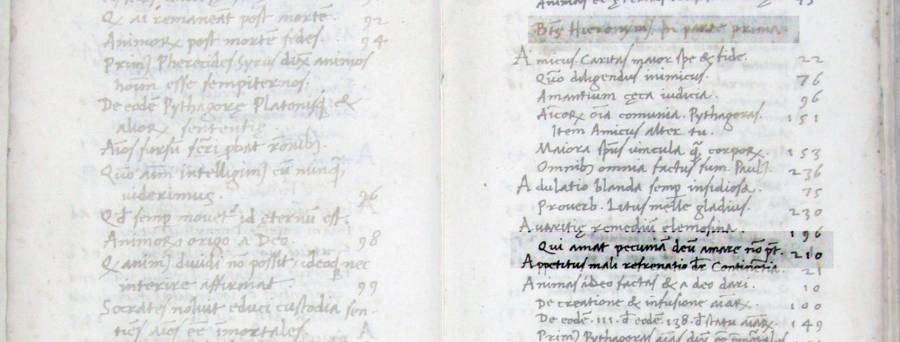 Q ai remaneat post mortē. 92
Animorꝝ post mortē fides. 94
Prim9 Pherecides Syrus dix animos
hoīum esse sempiternos.
De eodē Pythagorę Platonisq3 &
aliorꝝ sententię
viderimus. 96
Qd semp mouet id eternū est.
Animorꝝ origo a Deo. 98
Q animi diuidi nō possit ideoq3 nec
interire affirmat. 99
Socrates noluit educi custodia sen-
ties aīos eē īmortales. A
Bts Hieronym9 In parte prima
Amicus. Caritas maior spe & fide. 22
Quō diligendus inimicus. 76
Amantium cęca iudicia. 96
Aīcorꝝ oīa comunia. Pythagoras. 151
Item Amicus alter tu.
Maiora spūs vincula q̄ corporꝝ. 153
Omnib3 omnia factus sum. Paul9 236
Adulatio blanda semp insidiosa. 75
Prouerb. Litus melle gladius. 230
Auaritię remediū elemosina. 196
Qui amat pecuniā deū amare nō pt. 210
Appetitus mali refrenatio dr Continētia. 21
Animas ideo factas & a deo dari. 10
De creatione & infusione aīarꝝ. 100
De eodē. 111. d eodē. 138. d statu aīarꝝ. 149